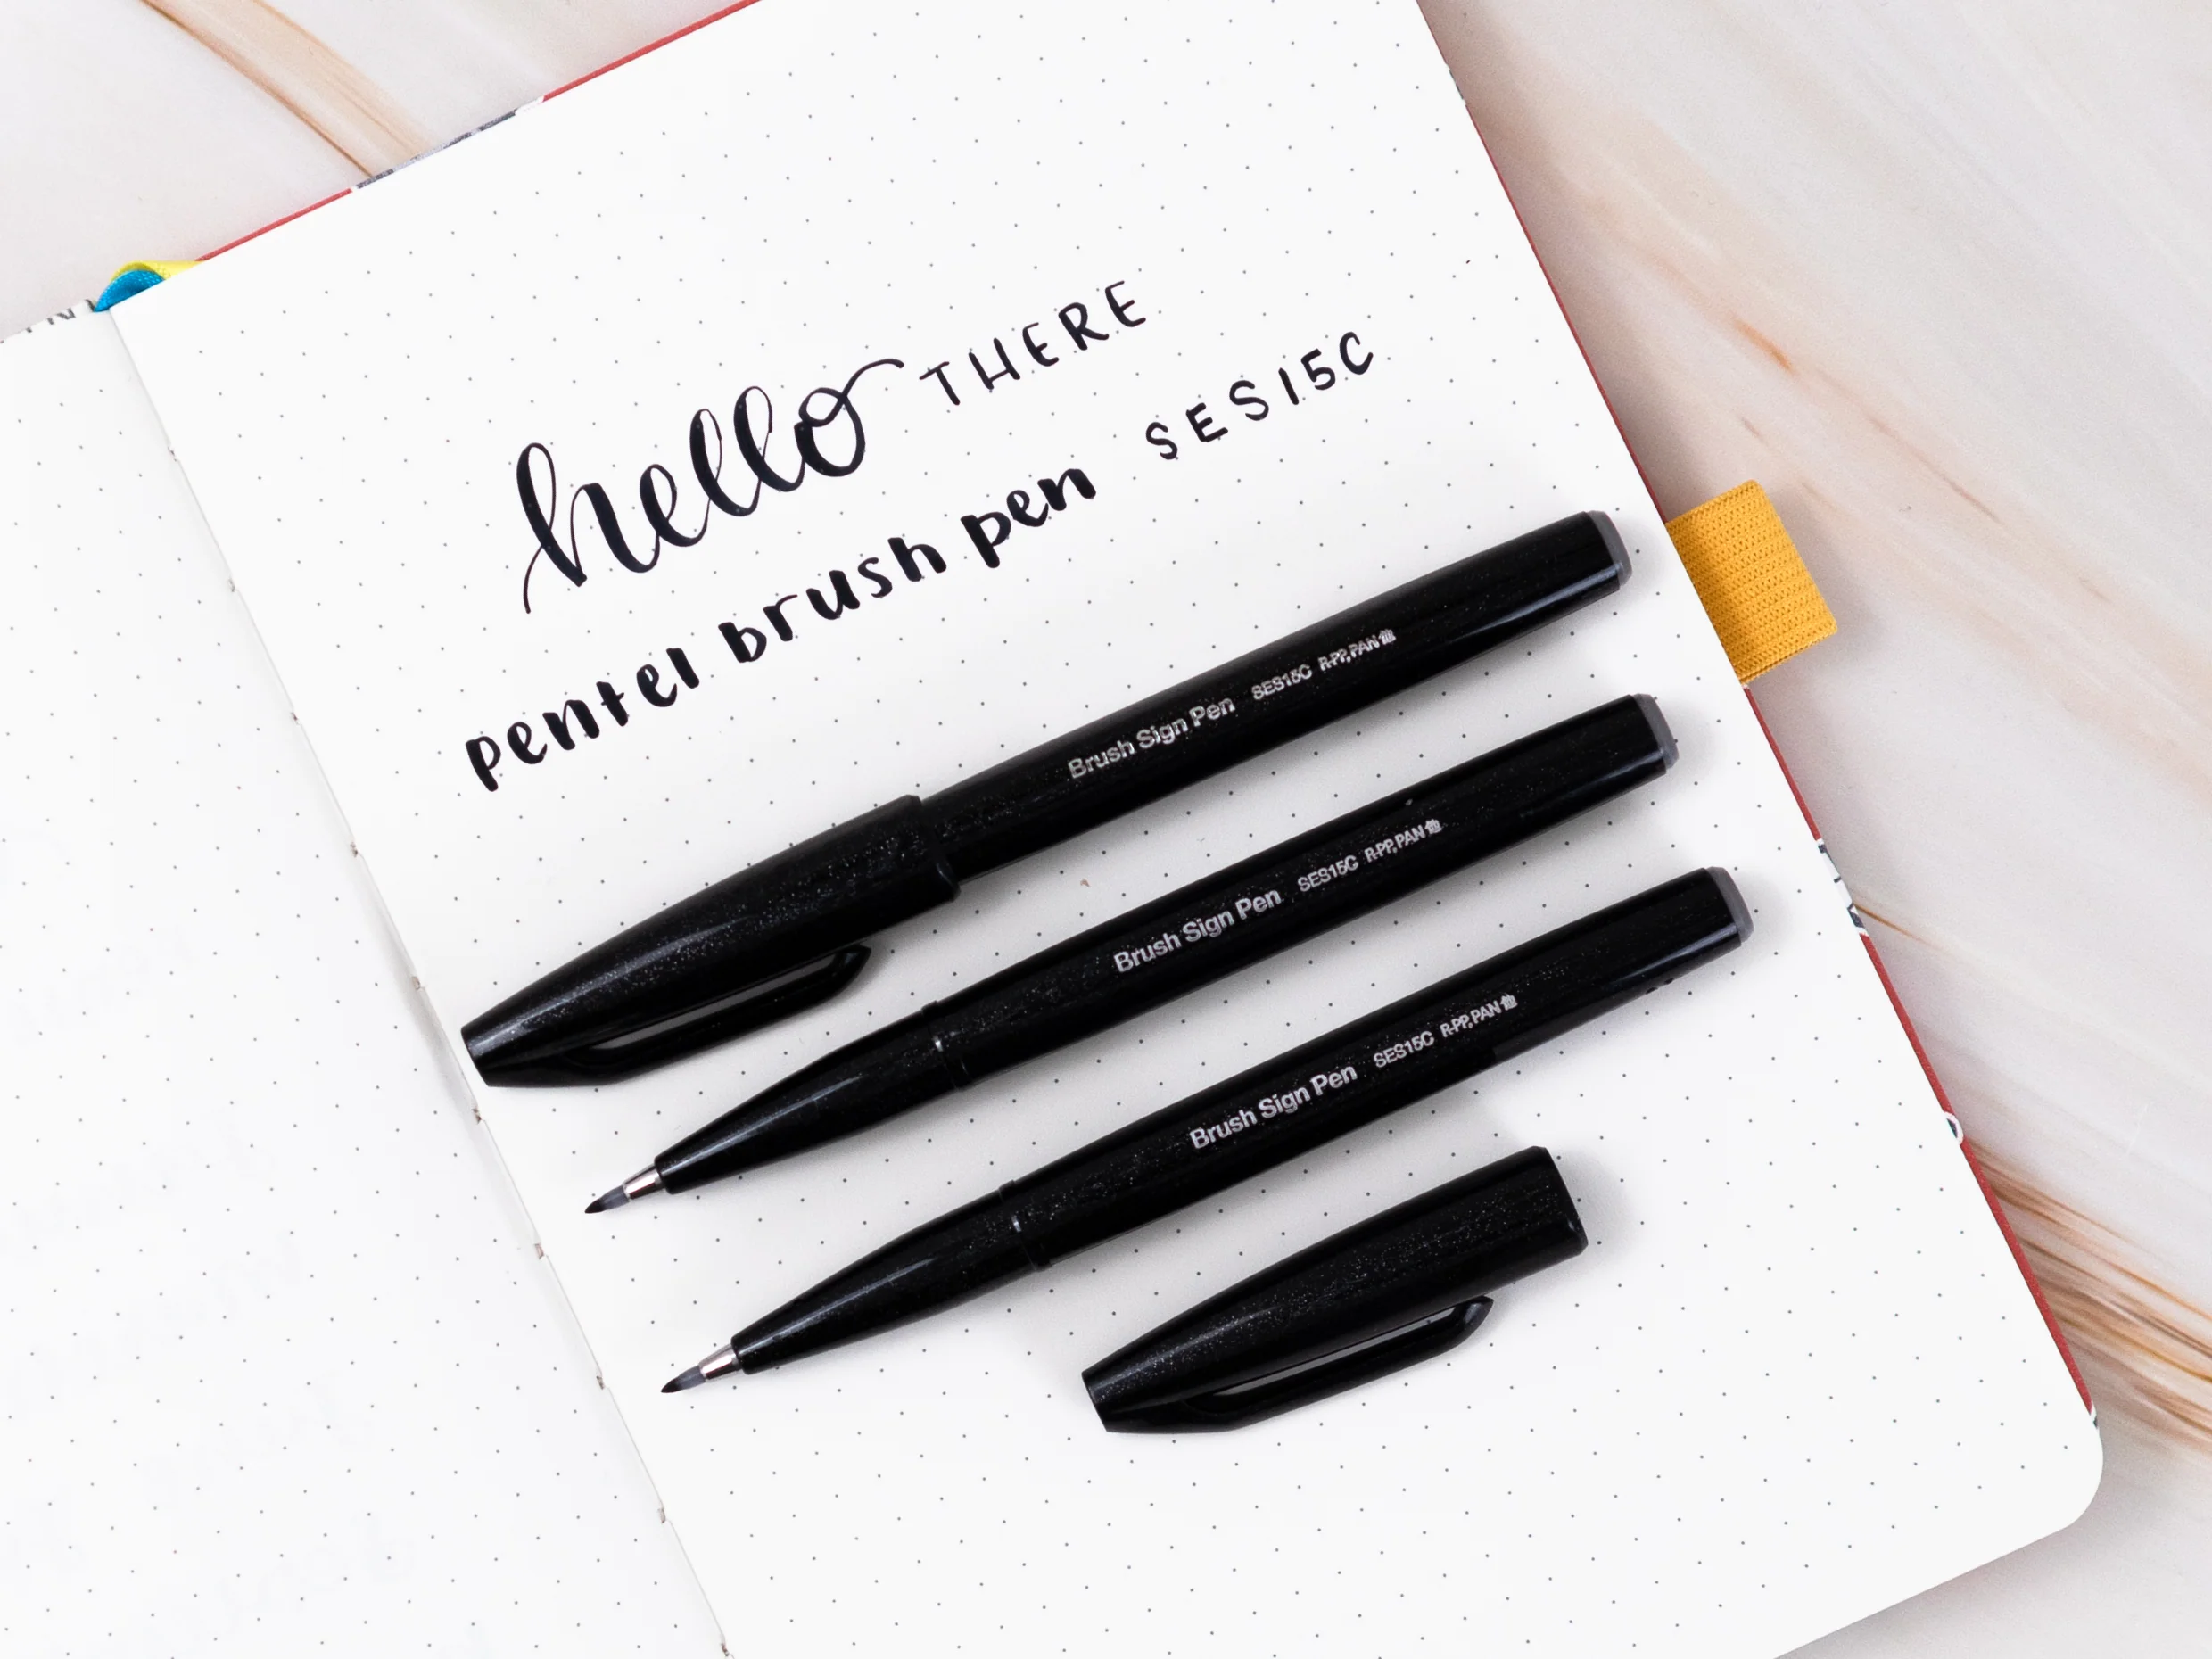 hello THERE
pentel brush pen SES15C
Brush Sign Pen SES15C R-PP,PAN他
Brush Sign Pen SES15C R-PP,PAN他
Brush Sign Pen SES15C R-PP,PAN他